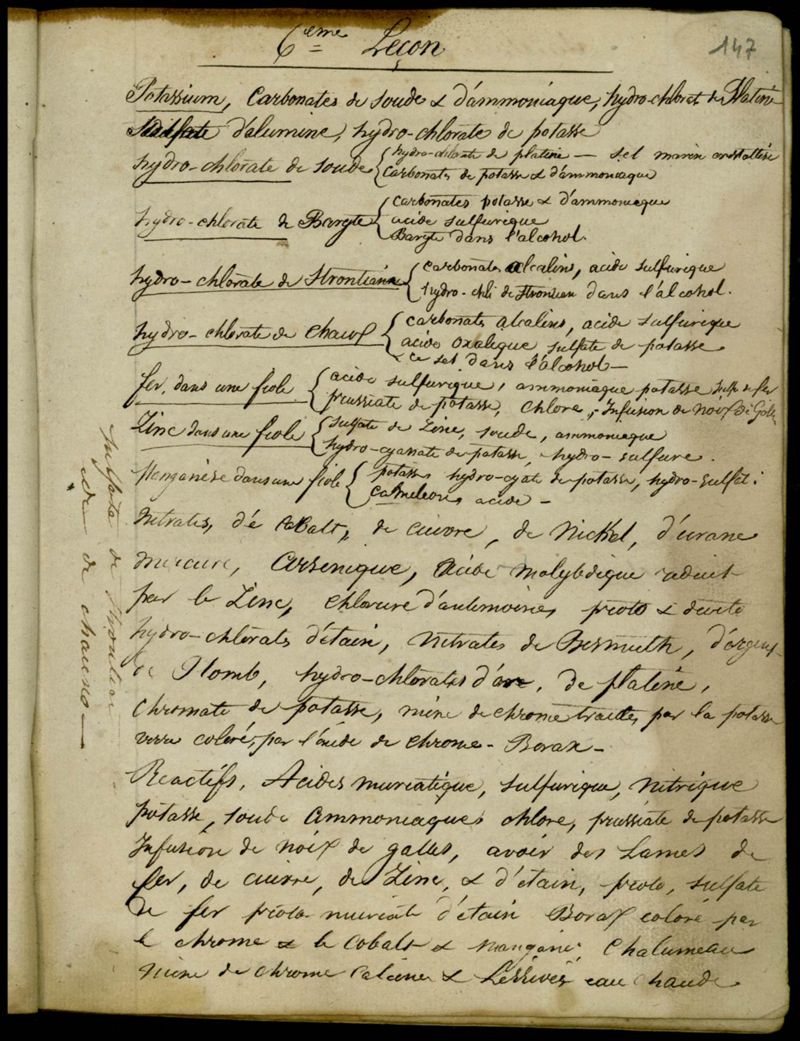 147
6eme Leçon
Potassium, Carbonates de soude & d'ammoniaque, hydro-chlorat de Platine
Sulfate d'alumine, hydro-chlorate de potasse
hydro-chlorate de soude { hydro-chlorate de platine — sel marin cristallisé
carbonates de potasse & d'ammoniaque
hydro-chlorate de Baryte { carbonates potasse & d'ammoniaque
acide sulfurique
Baryte dans l'alcohol.
hydro-chlorate de Strontiane { carbonates alcalins, acide sulfurique
hydro-chl de Strontian dans l'alcohol.
hydro-chlorate de chaux { carbonates alcalins, acide sulfurique
acide oxalique sulfate de potasse
& ce sel dans l'alcohol —
fer, dans une fiole { acide sulfurique, ammoniaque potasse Sulf de fer
prussiate de potasse, chlore, Infusion de Noix de Galle
Zinc dans une fiole { sulfate de Zinc, soude, ammoniaque
hydro-cyanate de potasse, hydro-sulfure.
Manganèse dans une fiole { potasse hydro-cyat de potasse, hydro-sulfat:
caméléon acide —
Nitrates, de Cobalt, de cuivre, de Nickel, d'urane
Mercure, Arsenique, Acide molybdique réduit
par le Zinc, chlorure d'antimoine, proto & deuto
hydro-chlorats d'étain, Nitrates de Bismuth, d'argent
de Plomb, hydro-chlorates d'or, de platine,
Chromate de potasse, mine de chrome traitée par la potasse
verre coloré, par l'oxide de chrome - Borax —
Réactifs, Acides muriatique, sulfurique, Nitrique
potasse, soude Ammoniaque, chlore, prussiate de potasse
Infusion de noix de galles, avoir des Lames de
fer, de cuivre, de Zinc, & d'étain, proto, sulfate
de fer proto muriate d'étain Borax coloré par
le chrome & le Cobalt & mangané: Chalumeau
Mine de chrome calcinée & Lessivée eau chaude
Sulfate de Strontian
de de chaux —